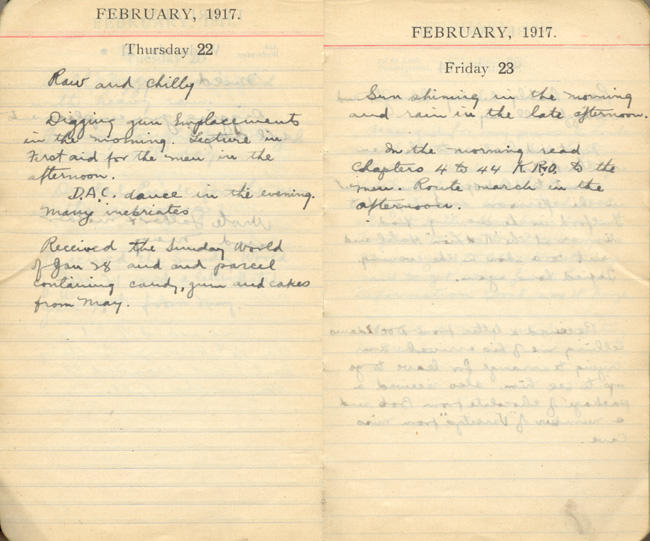 FEBRUARY, 1917.
Thursday 22
Raw and chilly
Digging gun Emplacements
in the morning. Lecture in
First aid for the men in the
afternoon.
D.A.C. dance in the evening.
Many inebriates
Received the Sunday World
of Jan 28 and and parcel
containing candy, gum and cakes
from May.
FEBRUARY, 1917.
Friday 23
Sun shining in the morning
and rain in the late afternoon.
In the morning read
Chapters 4 to 44 K.R.O. to the
men. Route march in the
afternoon.